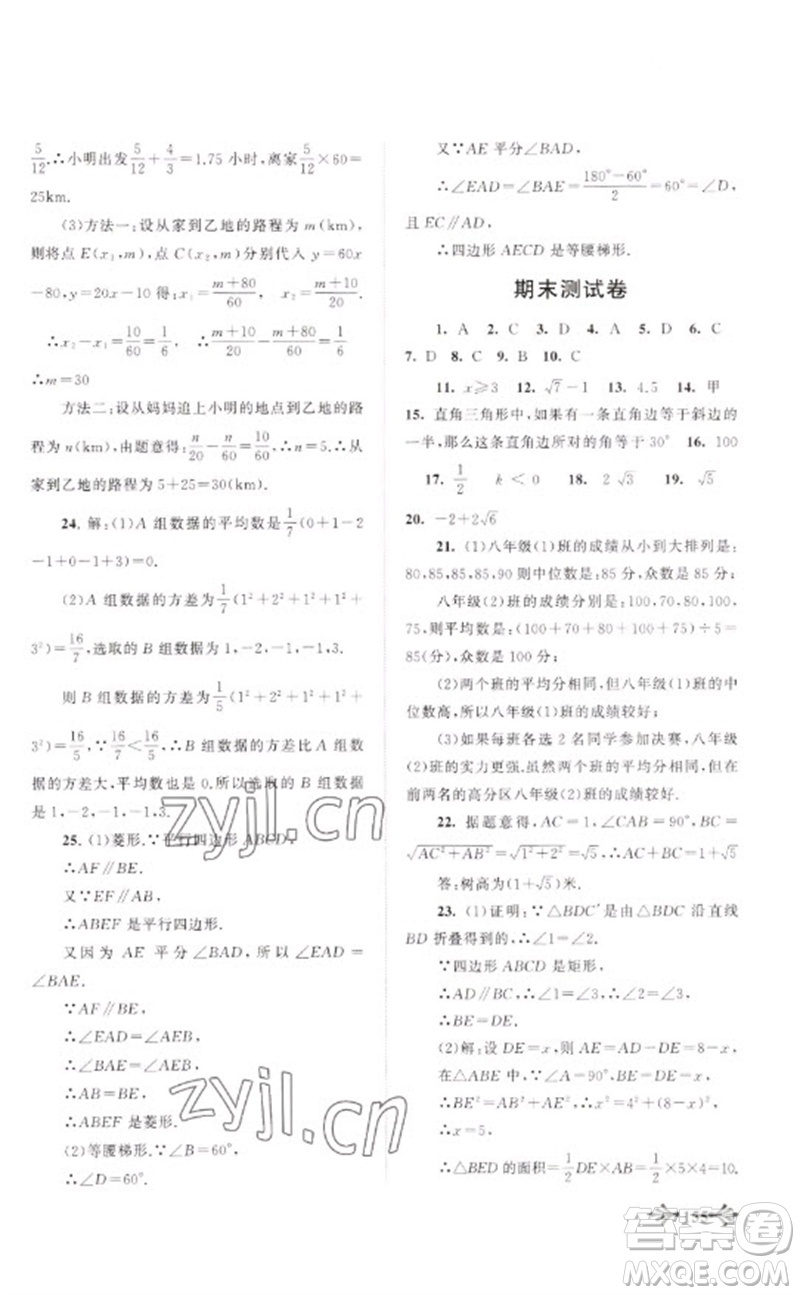 5/12. ∴小明出发5/12+4/3=1.75小时,离家5/12×60=
25km.
(3)方法一:设从家到乙地的路程为m(km),
则将点E(x₁,m),点C(x₂,m)分别代入y=60x
-80,y=20x-10得:x₁=(m+80)/60, x₂=(m+10)/20.
∴x₂-x₁=10/60=1/6 ∴(m+10)/20-(m+80)/60=1/6
∴m=30
方法二:设从妈妈追上小明的地点到乙地的路
程为n(km),由题意得:n/20-n/60=10/60,∴n=5.∴从
家到乙地的路程为5+25=30(km).
24. 解:(1)A组数据的平均数是1/7(0+1-2
-1+0-1+3)=0.
(2)A组数据的方差为1/7(1²+2²+1²+1²+
3²)=16/7,选取的B组数据为1,-2,-1,-1,3.
则B组数据的方差为1/5(1²+2²+1²+1²+
3²)=16/5,∵16/7<16/5,∴B组数据的方差比A组数
据的方差大,平均数也是0.所以选取的B组数据是
1,-2,-1,-1,3.
25. (1)菱形.∵平行四边形ABCD,
∴AF∥BE.
又∵EF∥AB,
∴ABEF是平行四边形.
又因为AE平分∠BAD,所以∠EAD=
∠BAE.
∵AF∥BE,
∴∠EAD=∠AEB,
∴∠BAE=∠AEB,
∴AB=BE,
∴ABEF是菱形.
(2)等腰梯形.∵∠B=60°,
∴∠BAD=120°.
又∵AE平分∠BAD,
∴∠EAD=∠BAE=(180°-60°)/2=60°=∠D,
且EC∥AD,
∴四边形AECD是等腰梯形.
期末测试卷
1. A 2. C 3. D 4. A 5. D 6. C
7. D 8. C 9. B 10. C
11. x≥3 12. √7-1 13. 4.5 14. 甲
15. 直角三角形中,如果有一条直角边等于斜边的
一半,那么这条直角边所对的角等于30° 16. 100
17. 1/2 k<0 18. 2√3 19. √5
20. -2+2√6
21. (1)八年级(1)班的成绩从小到大排列是:
80,85,85,85,90则中位数是:85分,众数是:85分;
八年级(2)班的成绩分别是:100,70,80,100,
75,则平均数是:(100+70+80+100+75)÷5=
85(分),众数是100分;
(2)两个班的平均分相同,但八年级(1)班的中
位数高,所以八年级(1)班的成绩较好;
(3)如果每班各选2名同学参加决赛,八年级
(2)班的实力更强.虽然两个班的平均分相同,但在
前两名的高分区八年级(2)班的成绩较好.
22. 据题意得,AC=1,∠CAB=90°,BC=
√(AC²+AB²)=√(1²+2²)=√5,∴AC+BC=1+√5
答:树高为(1+√5)米.
23. (1)证明:∵△BDC′是由△BDC沿直线
BD折叠得到的,∴∠1=∠2.
∵四边形ABCD是矩形,
∴AD∥BC,∴∠1=∠3,
∴BE=DE.
(2)解:设DE=x,则AE=AD-DE=8-x,
在△ABE中,∵∠A=90°,BE=DE=x,
∴BE²=AB²+AE²,∴x²=4²+(8-x)²,
∴x=5,
∴△BED的面积=1/2DE×AB=1/2×5×4=10.
zyjl.cn
zyjl.cn
答案圈
MXQE.COM